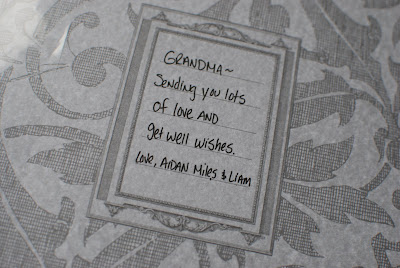 GRANDMA~
Sending you lots
of love AND
get well wishes.
Love, AIDAN Miles & LIAM